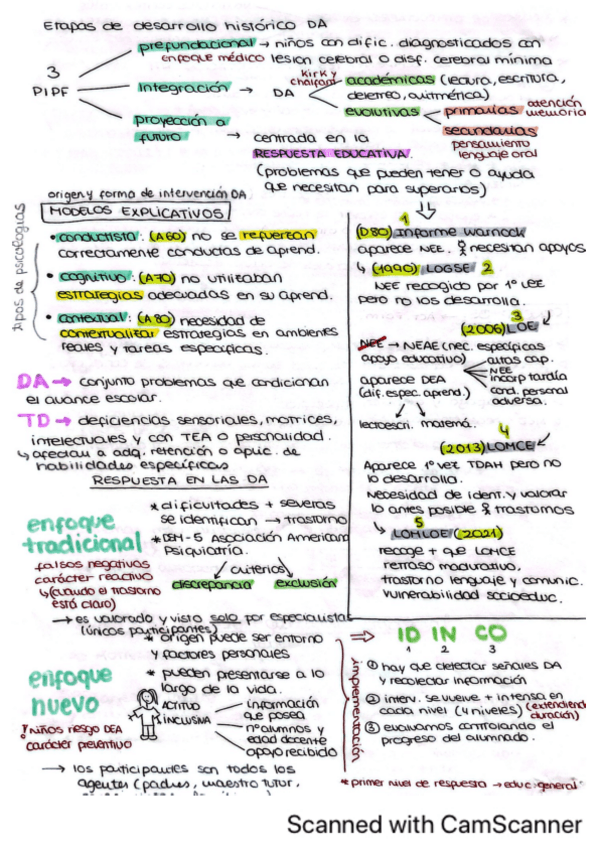 Etapas de desarrollo histórico DA
3 PIPF
prefundacional → niños con dific. diagnosticados con
enfoque médico lesion cerebral o disf. cerebral mínima
integración → DA
Kirk y
chalfant
académicas (lectura, escritura,
deletreo, aritmética)
evolutivas
primarias atención
memoria
secundarias
pensamiento
lenguaje oral
proyección a
futuro → centrada en la
RESPUESTA EDUCATIVA.
(problemas que pueden tener o ayuda
que necesitan para superarlos)
origen y forma de intervención DA
MODELOS EXPLICATIVOS
tipos de psicologías
• conductista: (A60) no se refuerzan
correctamente conductas de aprend.
• cognitivo: (A70) no utilizaban
estrategias adecuadas en su aprend.
• contextual: (A80) necesidad de
contextualizar estrategias en ambientes
reales y tareas específicas.
DA → conjunto problemas que condicionan
el avance escolar.
TD → deficiencias sensoriales, motrices,
intelectuales y con TEA o personalidad.
↳ afectan a adq. retención o aplic. de
habilidades específicas
1
(D80) Informe Warnock
aparece NEE. necesitan apoyos
↳ (1990) LOGSE 2
NEE recogido por 1º vez
pero no los desarrolla.
3
(2006) LOE
NEE → NEAE (nec. específicas
apoyo educativo)
altas cap.
NEE
incorp tardía
cond. personal
adversa.
aparece DEA
(dif. espec. aprend.)
lectoescri. matemá.
4
(2013) LOMCE
Aparece 1º vez TDAH pero no
lo desarrolla.
Necesidad de ident. y valorar
lo antes posible trastornos
5
↳ LOMLOE (2021)
recoge + que LOMCE
retraso madurativo,
trastorno lenguaje y comunic.
vulnerabilidad socioeduc.
RESPUESTA EN LAS DA
enfoque
tradicional
falsos negativos
carácter reactivo
↳ (cuando el trastorno
está claro)
* dificultades + severas
se identifican → trastorno
* DSM-5 Asociación Americana
Psiquiatría.
criterios
discrepancia exclusión
→ es valorado y visto solo por especialistas
(únicos participantes)
enfoque
nuevo
niños riesgo DEA
carácter preventivo
* origen puede ser entorno
y factores personales
* pueden presentarse a lo
largo de la vida.
ACTITUD
INCLUSIVA
información
que posea
nº alumnos y
edad docente
apoyo recibido
→ los participantes son todos los
agentes (padres, maestro tutor,
⇒ ID IN CO
1 2 3
① hay que detectar señales DA
y recolectar información
② interv. se vuelve + intensa en
cada nivel (4 niveles) (extendiendo
duración)
③ evaluamos controlando el
progreso del alumnado.
* primer nivel de respuesta → educ. general
Scanned with CamScanner